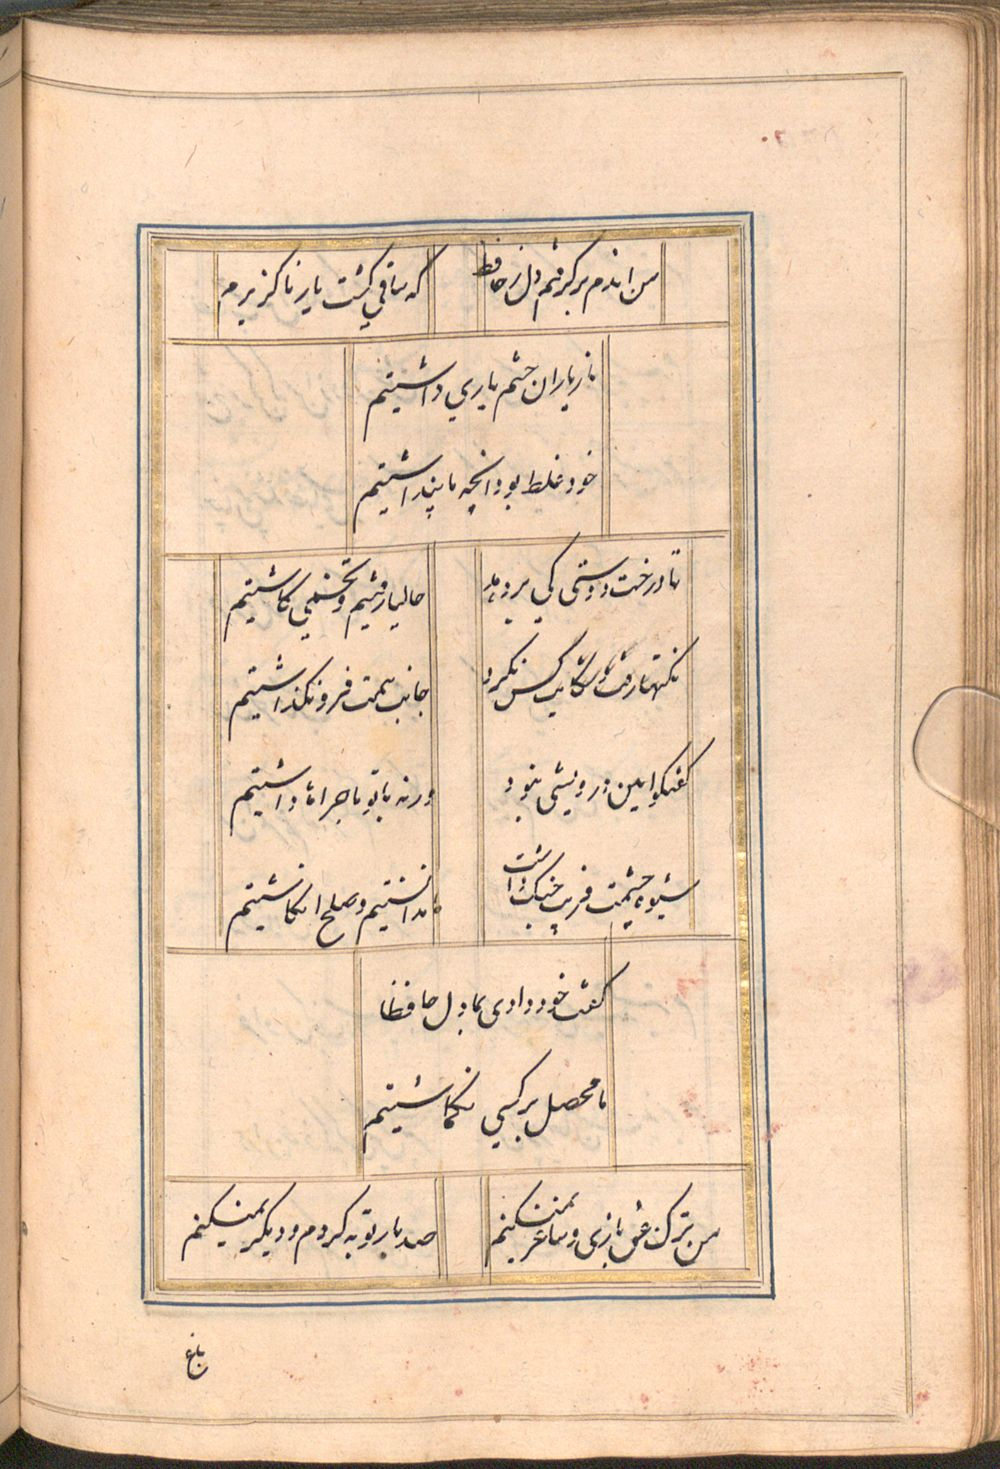 من اندم برگرفتم دل ز حافظ
که ساقی گشت یار ناگزیرم
ما ز یاران چشم یاری داشتیم
خود غلط بود انچه ما پنداشتیم
تا درخت دوستی کی بر دهد
حالیا رفتیم و تخمی کاشتیم
نکتها رفت و شکایت کس نکرد
جانب حرمت فرو نگذاشتیم
گفتگو ایین درویشی نبود
ورنه با تو ماجراها داشتیم
شیوه چشمت فریب جنگ داشت
ما ندانستیم و صلح انگاشتیم
گفت خود دادی بما دل حافظا
ما محصل بر کسی نگماشتیم
من ترک عشق بازی و ساغر نمیکنم
صد بار توبه کردم و دیگر نمیکنم
باغ